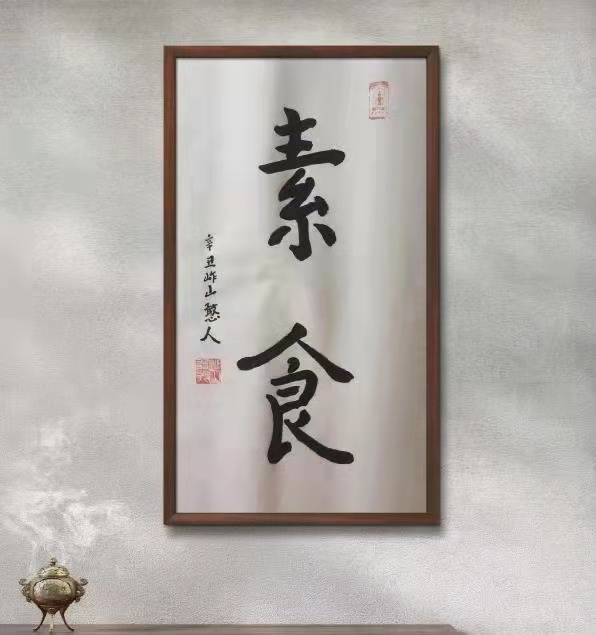 素食
辛丑岞山憨人